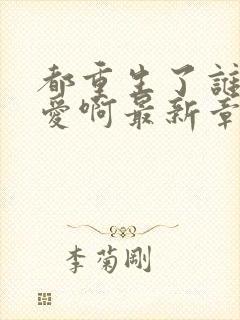 都重生了誰
愛啊最新章
李菊剛